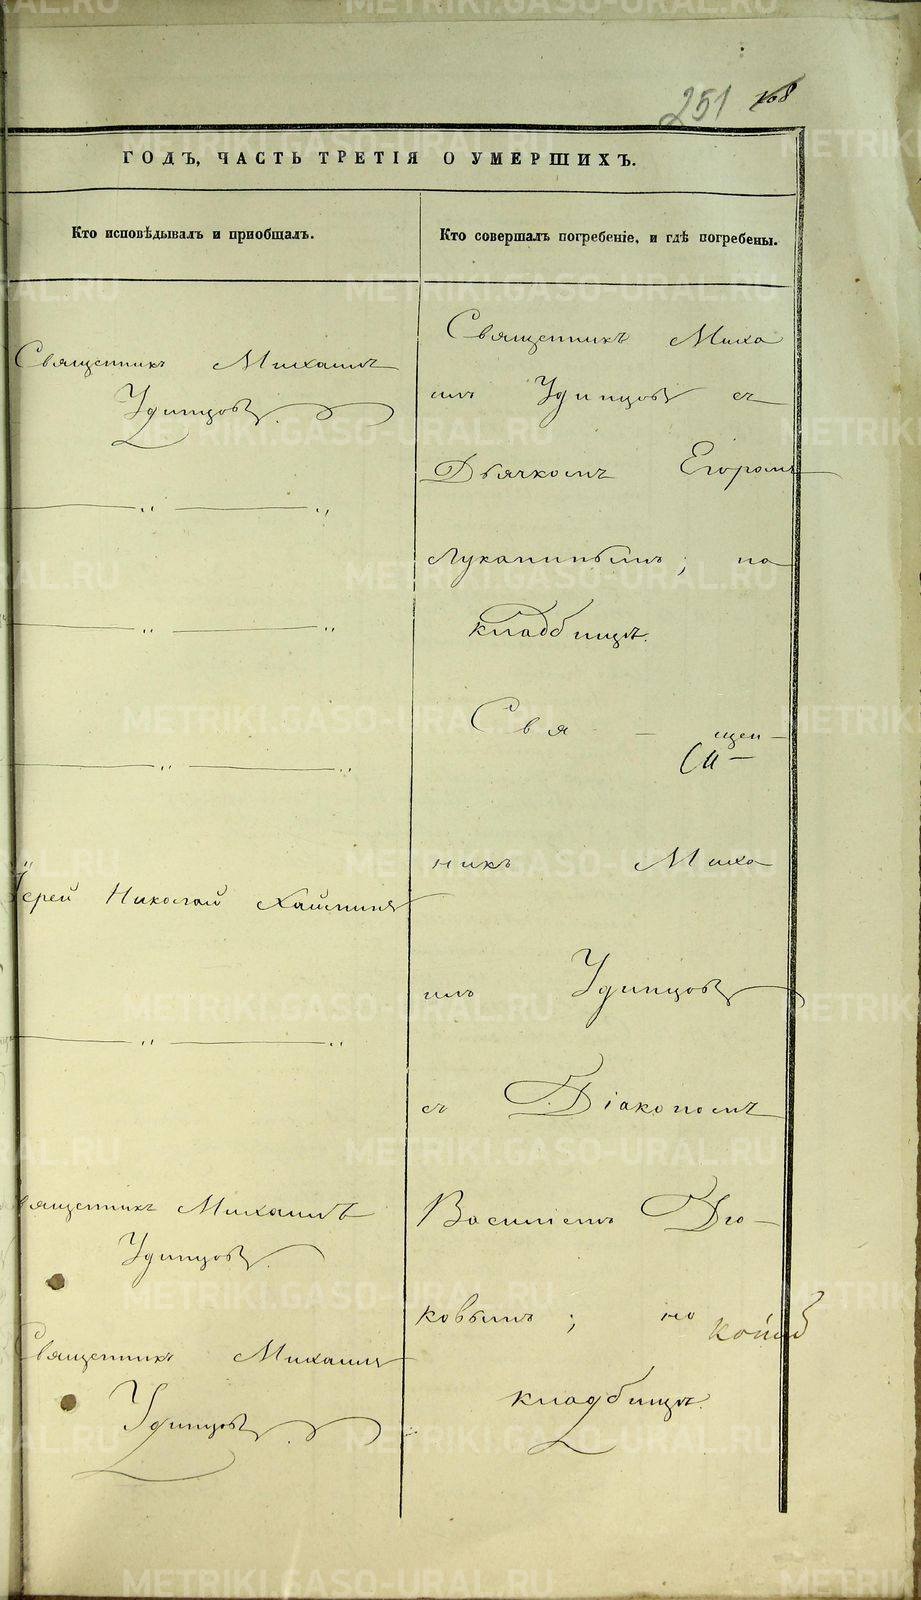 251 168
ГОДЪ, ЧАСТЬ ТРЕТІЯ О УМЕРШИХЪ.
Кто исповѣдывалъ и пріобщалъ.
Кто совершалъ погребеніе, и гдѣ погребены.
Священникъ Михаилъ
Удинцовъ.
— „ — „
— „ — „
— „ — „
Іерей Николай
— „ — „
вященникъ Михаилъ
Удинцовъ.
Священникъ Михаилъ
Удинцовъ.
Священникъ Миха
илъ Удинцовъ съ
Дьячкомъ Егоромъ
Лукапинымъ; на
кладбищѣ.
Свя — щен —
никъ Миха
илъ Удинцовъ
съ Діакономъ
Василіемъ Дю-
ковымъ; на
кладбищѣ.
METRIKI.GASO-URAL.RU